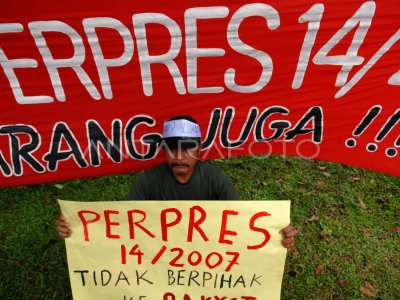 PERPRES 14/
ARANG JUGA !!!
PERPRES
14/2007
TIDAK BERPIHAK
KE RAKYAT
ANTARA FOTO